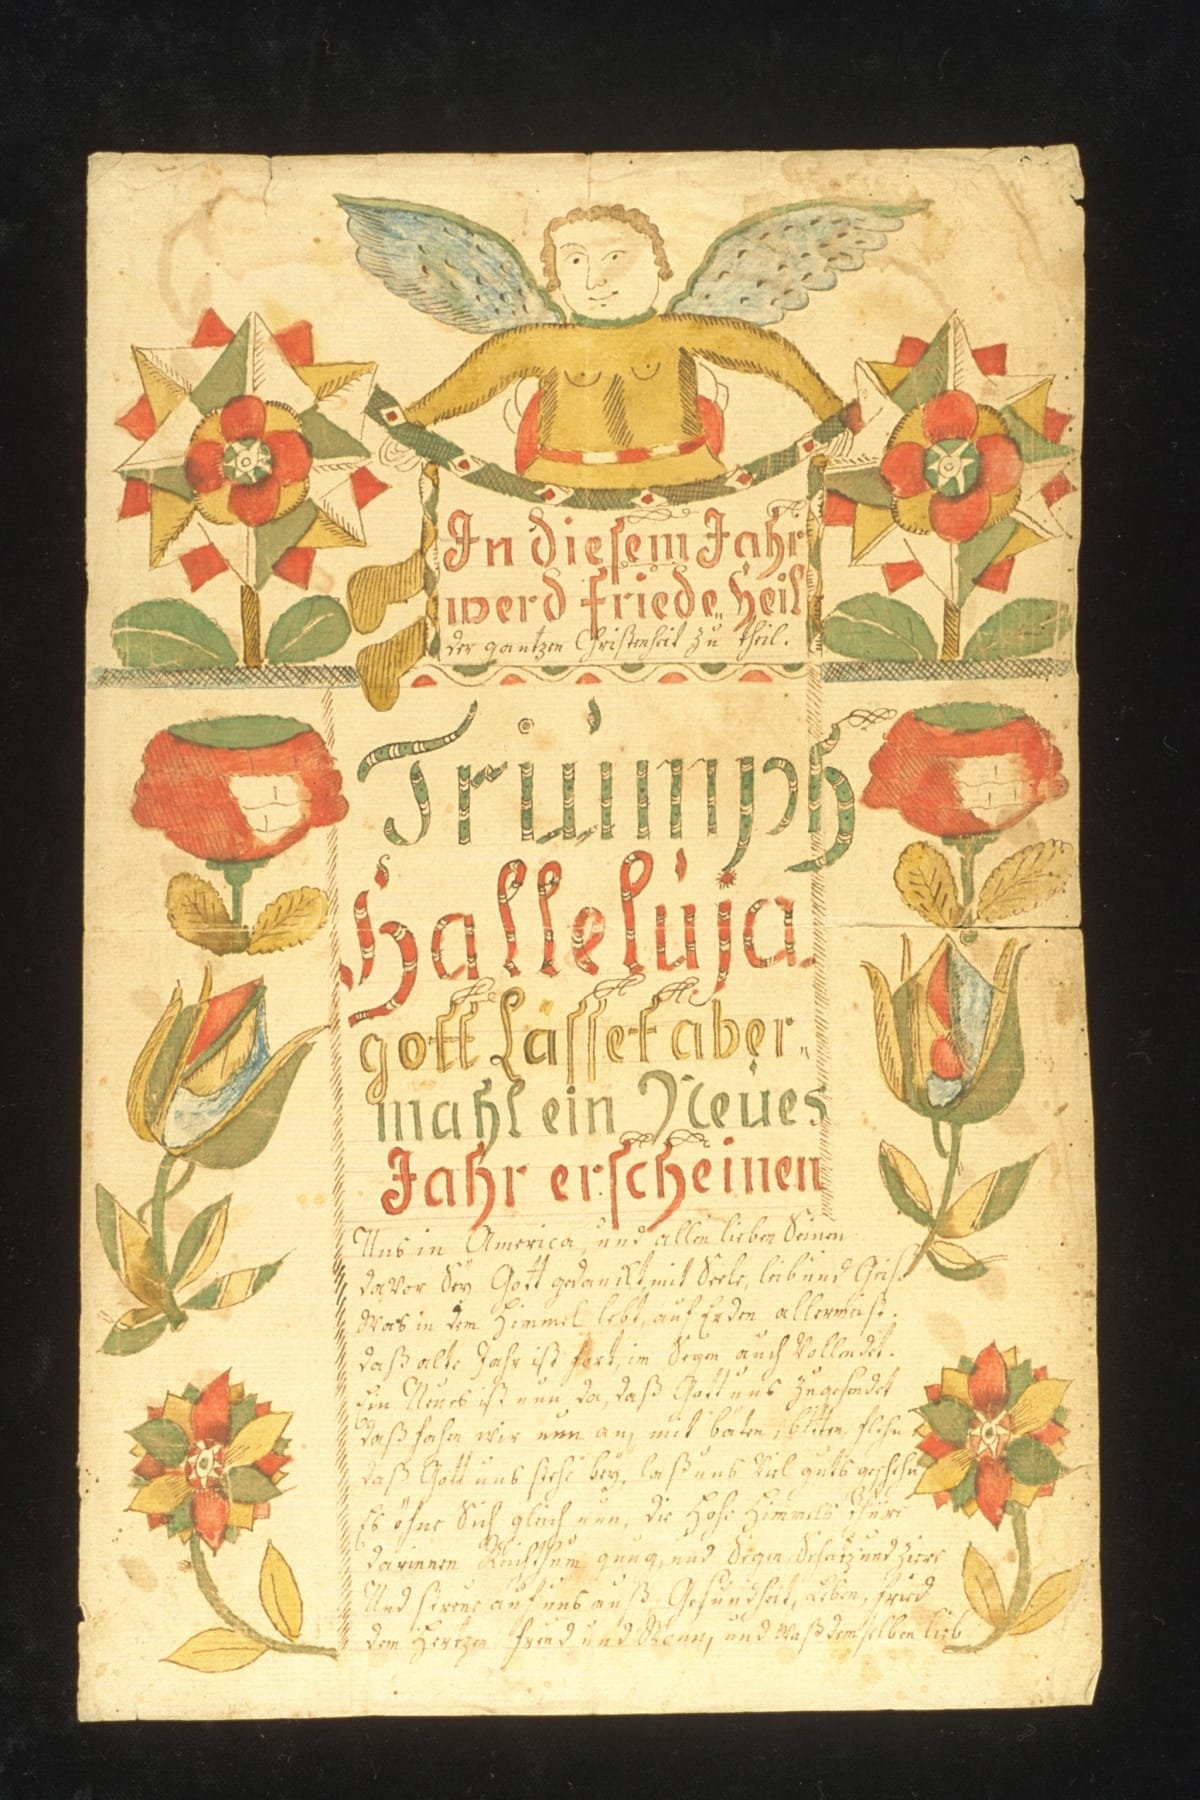 In diesem Jahr
werd friede„ heil
der gantzen Christenheit zu theil.
Triumph
Halleluja
gott Lässet aber„
mahl ein Neues
Jahr erscheinen
Uns in America, und allen lieben Seinen
davor Sey Gott gedanckt, mit Seele, leib und Geist
Was in dem Himmel lebt, auf Erden allermeist.
daß alte Jahr ist fort, im Segen auch Vollendet.
Ein Neues ist nun da, daß Gott uns zugesendet
daß fahen wir nun an, mit bäten, bitten, flehn
daß Gott uns stehe bey, laß uns Viel guts geschehn
Es öfne Sich gleich nun, die Hohe Himmels thüre
darinnen Reichthum gnug, und Segen, Schatz und Ziere
Und streue auf uns auß Gesundheit, Leben, fried
dem Hertzen freud und Wonn, und waß demselben lieb